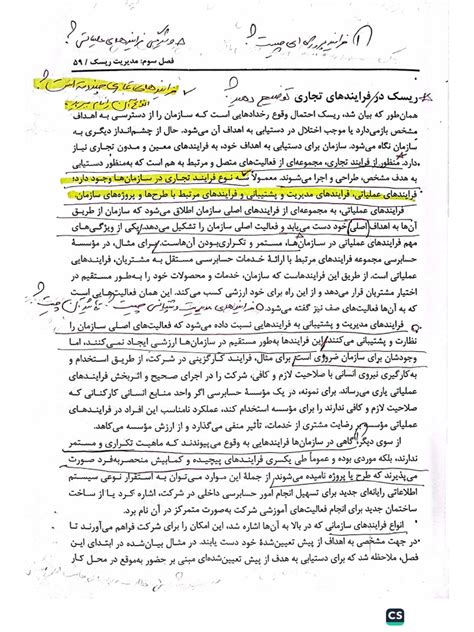 ① فرایند پروژه ای چیست؟
ویژگی فرایندهای عملیاتی؟
فصل سوم: مدیریت ریسک / ۵۹
ریسک در فرایندهای تجاری توضیح دهید؟
فرایندهای تجاری چند نوع است؟
همان‌طور که بیان شد، ریسک احتمال وقوع رخدادهایی است که سازمان را از دسترسی به اهداف
مشخص بازمی‌دارد یا موجب اختلال در دستیابی به اهداف آن می‌شود. حال از چشم‌انداز دیگری به
سازمان نگاه می‌شود. سازمان برای دستیابی به اهداف خود، به فرایندهای معین و مدون تجاری نیاز
دارد. منظور از فرایند تجاری، مجموعه‌ای از فعالیت‌های متصل و مرتبط به هم است که به‌منظور دستیابی
به هدف مشخص، طراحی و اجرا می‌شوند. معمولاً سه نوع فرایند تجاری در سازمان‌ها وجود دارد:
فرایندهای عملیاتی، فرایندهای مدیریت و پشتیبانی و فرایندهای مرتبط با طرح‌ها و پروژه‌های سازمان.
فرایندهای عملیاتی، به مجموعه‌ای از فرایندهای سازمان اطلاق می‌شود که سازمان از طریق
آن‌ها به اهداف اصلی خود دست می‌یابد و فعالیت اصلی سازمان را تشکیل می‌دهد. یکی از ویژگی‌های
مهم فرایندهای عملیاتی در سازمان‌ها، مستمر و تکراری‌بودن آن‌هاست. برای مثال، در مؤسسهٔ
حسابرسی مجموعه فرایندهای مرتبط با ارائهٔ خدمات حسابرسی به مشتریان، فرایندهای
عملیاتی است. از طریق این فرایندهاست که سازمان، خدمات و محصولات خود را به‌طور مستقیم در
اختیار مشتریان قرار می‌دهد و از این راه برای خود ارزشی کسب می‌کند. این همان فعالیت‌هایی است
که به آن‌ها فعالیت‌های صف نیز گفته می‌شود.
فرایندهای مدیریت و پشتیبانی به فرایندهایی نسبت داده می‌شود که فعالیت‌های اصلی سازمان را
نظارت و پشتیبانی می‌کنند. این فرایندها به‌طور مستقیم در سازمان‌ها ارزشی ایجاد نمی‌کنند، اما
وجودشان برای سازمان ضروری است. برای مثال، فرایند کارگزینی در شرکت، از طریق استخدام و
به‌کارگیری نیروی انسانی با صلاحیت لازم و کافی، شرکت را در اجرای صحیح و اثربخش فرایندهای
عملیاتی یاری می‌رساند. برای نمونه، در یک مؤسسهٔ حسابرسی اگر واحد منابع انسانی کارکنانی که
صلاحیت لازم و کافی ندارند را برای مؤسسه استخدام کند، عملکرد نامناسب این افراد در فرایندهای
مؤسسه بر رضایت مشتری از خدمات، تأثیر منفی می‌گذارد و از ارزش مؤسسه می‌کاهد.
از سوی دیگر، گاهی در سازمان‌ها فرایندهایی به وقوع می‌پیوندند که ماهیت تکراری و مستمر
ندارند، بلکه موردی بوده و عموماً طی یکسری فرایندهای پیچیده و کمابیش منحصربه‌فرد صورت
می‌پذیرند که طرح یا پروژه نامیده می‌شوند. از جملهٔ این موارد می‌توان به استقرار نوعی سیستم
اطلاعاتی رایانه‌ای جدید برای تسهیل انجام امور حسابرسی داخلی در شرکت، اشاره کرد یا از ساخت
ساختمان جدید برای انجام فعالیت‌های آموزشی شرکت به‌صورت متمرکز در آن نام برد.
انواع فرایندهای سازمانی که در بالا به آن‌ها اشاره شد، این امکان را برای شرکت فراهم می‌آورند تا
در جهت مشخصی به اهداف از پیش تعیین‌شدهٔ خود دست یابند. در مثال بیان‌شده در ابتدای این
فصل، ملاحظه شد که برای دستیابی به هدف از پیش تعیین‌شده‌ای مبنی بر حضور به‌موقع در محل کار
CS